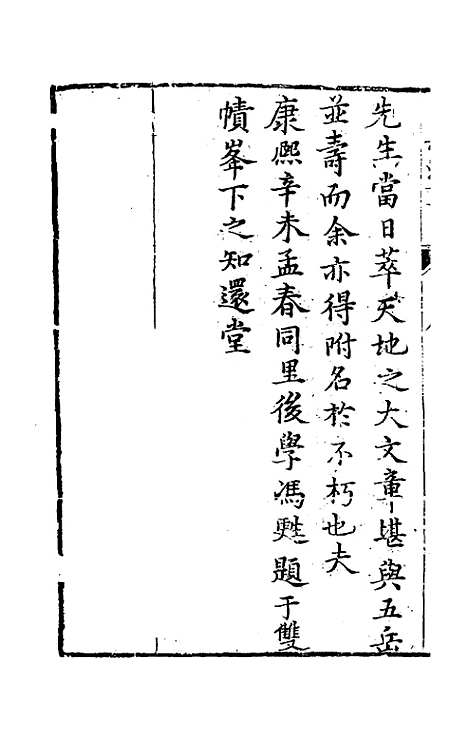 先生當日萃天地之大文章堪與五岳
並壽而余亦得附名於不朽也夫
康熙辛未孟春同里後學馮甦題于雙
幘峯下之知還堂